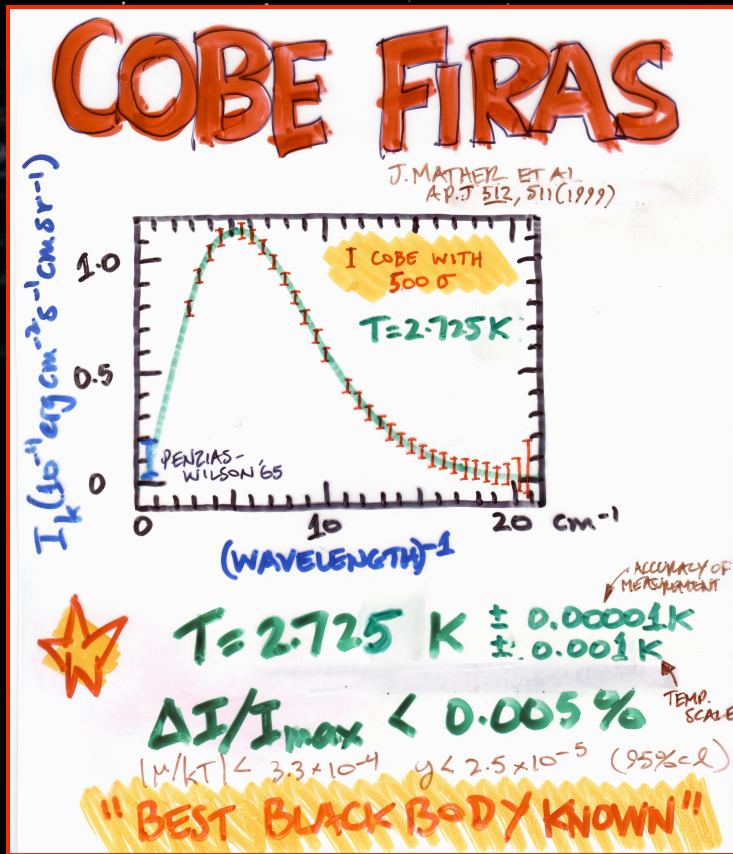 COBE FIRAS
J. MATHER ET AL
AP.J 512, 511 (1999)
I_k (10⁻¹¹ erg cm⁻² s⁻¹ cm sr⁻¹)
1.0
0.5
0
I COBE WITH
500 σ
T=2.725 K
PENZIAS-
WILSON '65
0 10 20 cm⁻¹
(WAVELENGTH)⁻¹
ACCURACY OF
MEASUREMENT
T=2.725 K ± 0.00001K
± 0.001 K
TEMP.
SCALE
ΔI/Imax < 0.005%
|μ/kT| < 3.3×10⁻⁴ y < 2.5×10⁻⁵ (95% cl)
"BEST BLACKBODY KNOWN"